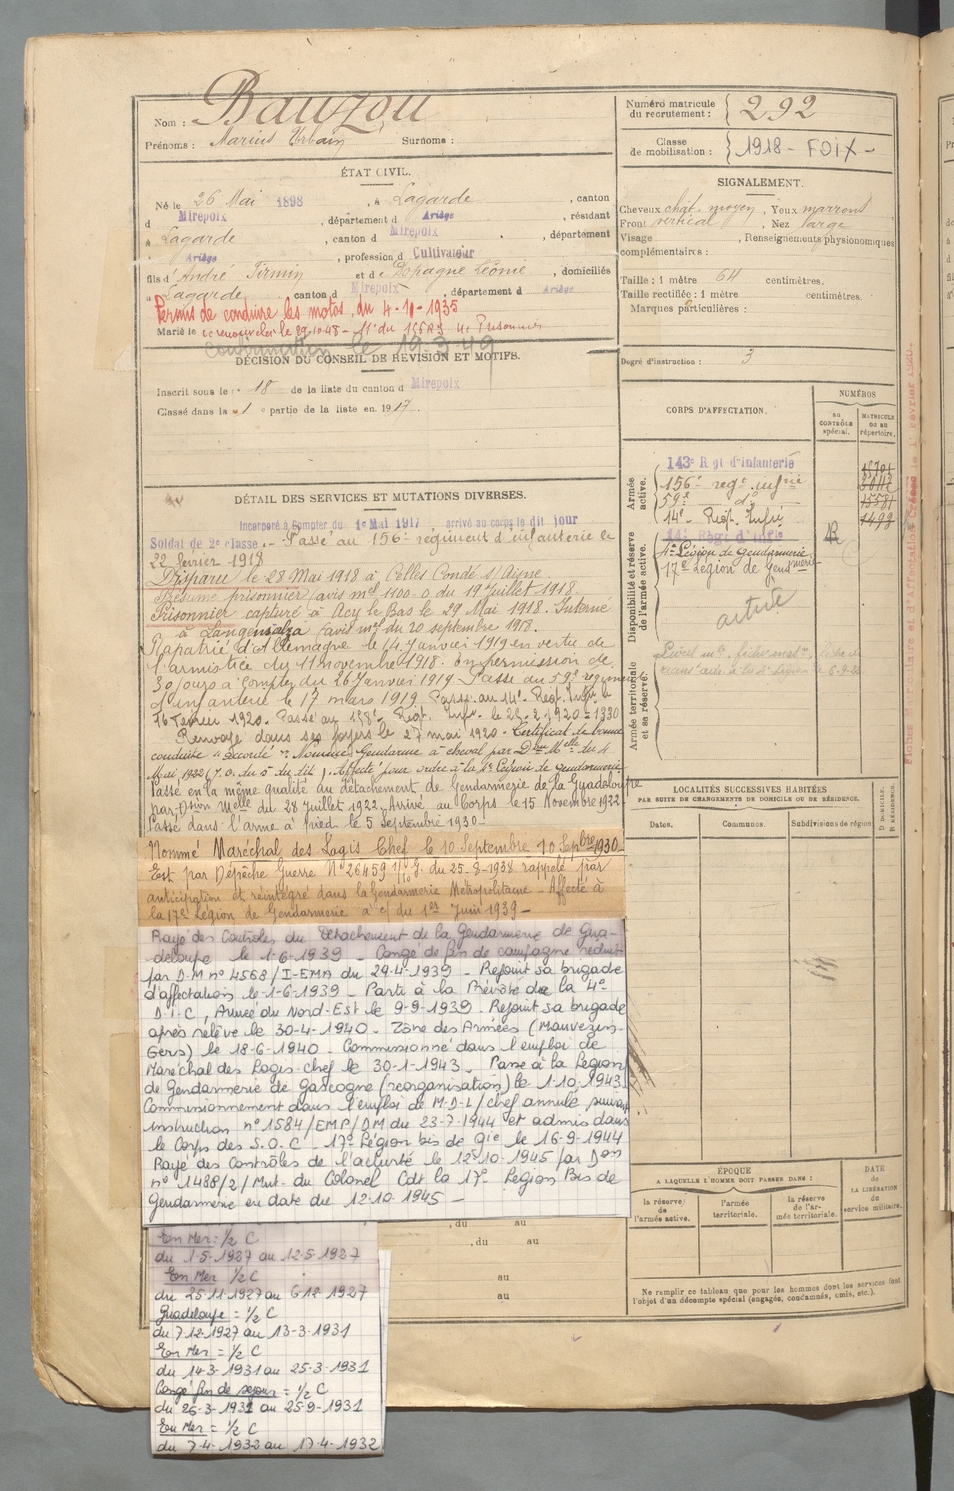 Nom : Bauzou
Prénoms : Marius Urbain Surnoms :
Numéro matricule du recrutement : 292
Classe de mobilisation : 1918 - FOIX -
ÉTAT CIVIL.
Né le 26 Mai 1898, à Lagarde, canton
d Mirepoix, département d Ariège, résidant
à Lagarde, canton d Mirepoix, département
Ariège, profession d Cultivateur
fils d'André Firmin et de Espagne Léonie, domiciliés
à Lagarde canton d Mirepoix, département d Ariège
Permis de conduire les motos, du 4-10-1935
Marié le
le 19-3-49
DÉCISION DU CONSEIL DE RÉVISION ET MOTIFS.
Inscrit sous le n° 18 de la liste du canton d Mirepoix
Classé dans la 1e partie de la liste en 1917.
SIGNALEMENT.
Cheveux chat. moyen, Yeux marrons
Front vertical, Nez large
Visage , Renseignements physionomiques
complémentaires :
Taille : 1 mètre 64 centimètres.
Taille rectifiée : 1 mètre centimètres.
Marques particulières :
Degré d'instruction : 3
CORPS D'AFFECTATION.
NUMÉROS
AU CONTRÔLE spécial.
MATRICULE OU AU répertoire.
Armée active.
143e Rgt d'infanterie
156e regt infrie
59e do
14e Regt. Infie
Disponibilité et réserve de l'armée active.
4e Légion de Gendarmerie
17e Légion de Gendmerie
activité
Armée territoriale et sa réserve.
DÉTAIL DES SERVICES ET MUTATIONS DIVERSES.
Incorporé à compter du 1e Mai 1917 arrivé au corps le dit jour
Soldat de 2e classe. - Passé au 156e régiment d'infanterie le
22 février 1918
Disparu le 28 Mai 1918 à Celles Condé s/ Aisne.
Présumé prisonnier avis mel 1100-0 du 19 Juillet 1918.
Prisonnier capturé à Acy le Bas le 29 Mai 1918. Interné
à Langensalza (avis mel du 20 septembre 1918.
Rapatrié d'allemagne le 14 Janvier 1919 en vertu de
l'armistice du 11 novembre 1918. En permission de
30 jours à compter du 26 Janvier 1919. Passé au 59e régiment
d'infanterie le 17 mars 1919. Passé au 14e Regt. Infie le
16 février 1920.
Renvoyé dans ses foyers le 27 mai 1920. Certificat de bonne
conduite "accordé". Nommé Gendarme à cheval par Don Melle du 4
Mai 1922 (J.O. du 5 du dit). Affecté pour ordre à la 4e Légion de gendarmerie
Passé en la même qualité au détachement de Gendarmerie de la Guadeloupe
par Dsion Melle du 28 Juillet 1922. Arrivé au Corps le 15 Novembre 1922
Passé dans l'arme à pied le 5 Septembre 1930 -
Nommé Maréchal des Logis Chef le 10 Septembre 10 Sepbre 1930 -
Est par Dépêche Guerre N° 26459 du 25-8-1938 rappelé par
anticipation et réintégré dans la Gendarmerie Métropolitaine - Affecté à
la 17e Légion de Gendarmerie à c/ du 1er Juin 1939 -
Rayé des Contrôles du Détachement de la Gendarmerie de Gua-
deloupe le 1-6-1939 - Congé de fin de campagne réduit
par D.M n° 4568/I-EMA du 29-4-1939 - Rejoint sa brigade
d'affectation le 1-6-1939 - Parti à la Prévôté de la 4e
D.I.C, Armée du Nord-Est le 9-9-1939. Rejoint sa brigade
après relève le 30-4-1940 - Zone des Armées (Mauvezin-
Gers) le 18-6-1940 - Commissionné dans l'emploi de
Maréchal des Logis-chef le 30-1-1943 - Passé à la Légion
de Gendarmerie de Gascogne (réorganisation) le 1-10-1943
Commissionnement dans l'emploi de M-D-L/chef annulé suivant
instruction n° 1584/EMP/DM du 23-7-1944 et admis dans
le Corps des S.O.C - 17e Légion bis de Gie le 16-9-1944
Rayé des Contrôles de l'activité le 12-10-1945 par Don
n° 1488/2/Mut. du Colonel Cdt la 17e Légion Bis de
Gendarmerie en date du 12-10-1945 -
, du au
, du au
au
au
En Mer : 1/2 C
du 1-5-1927 au 12-5-1927
En Mer 1/2 C
du 25-11-1927 au 6-12-1927
Guadeloupe = 1/2 C
du 7-12-1927 au 13-3-1931
En Mer = 1/2 C
du 14-3-1931 au 25-3-1931
Congé fin de séjour = 1/2 C
du 26-3-1931 au 25-9-1931
En Mer = 1/2 C
du 7-4-1932 au 17-4-1932
LOCALITÉS SUCCESSIVES HABITÉES
PAR SUITE DE CHANGEMENTS DE DOMICILE OU DE RÉSIDENCE.
Dates. Communes. Subdivisions de région
D DOMICILE. R RÉSIDENCE.
ÉPOQUE
A LAQUELLE L'HOMME DOIT PASSER DANS :
la réserve de l'armée active.
l'armée territoriale.
la réserve de l'armée territoriale.
DATE de LA LIBÉRATION du service militaire.
Ne remplir ce tableau que pour les hommes dont les services font
l'objet d'un décompte spécial (engagés, condamnés, omis, etc.).